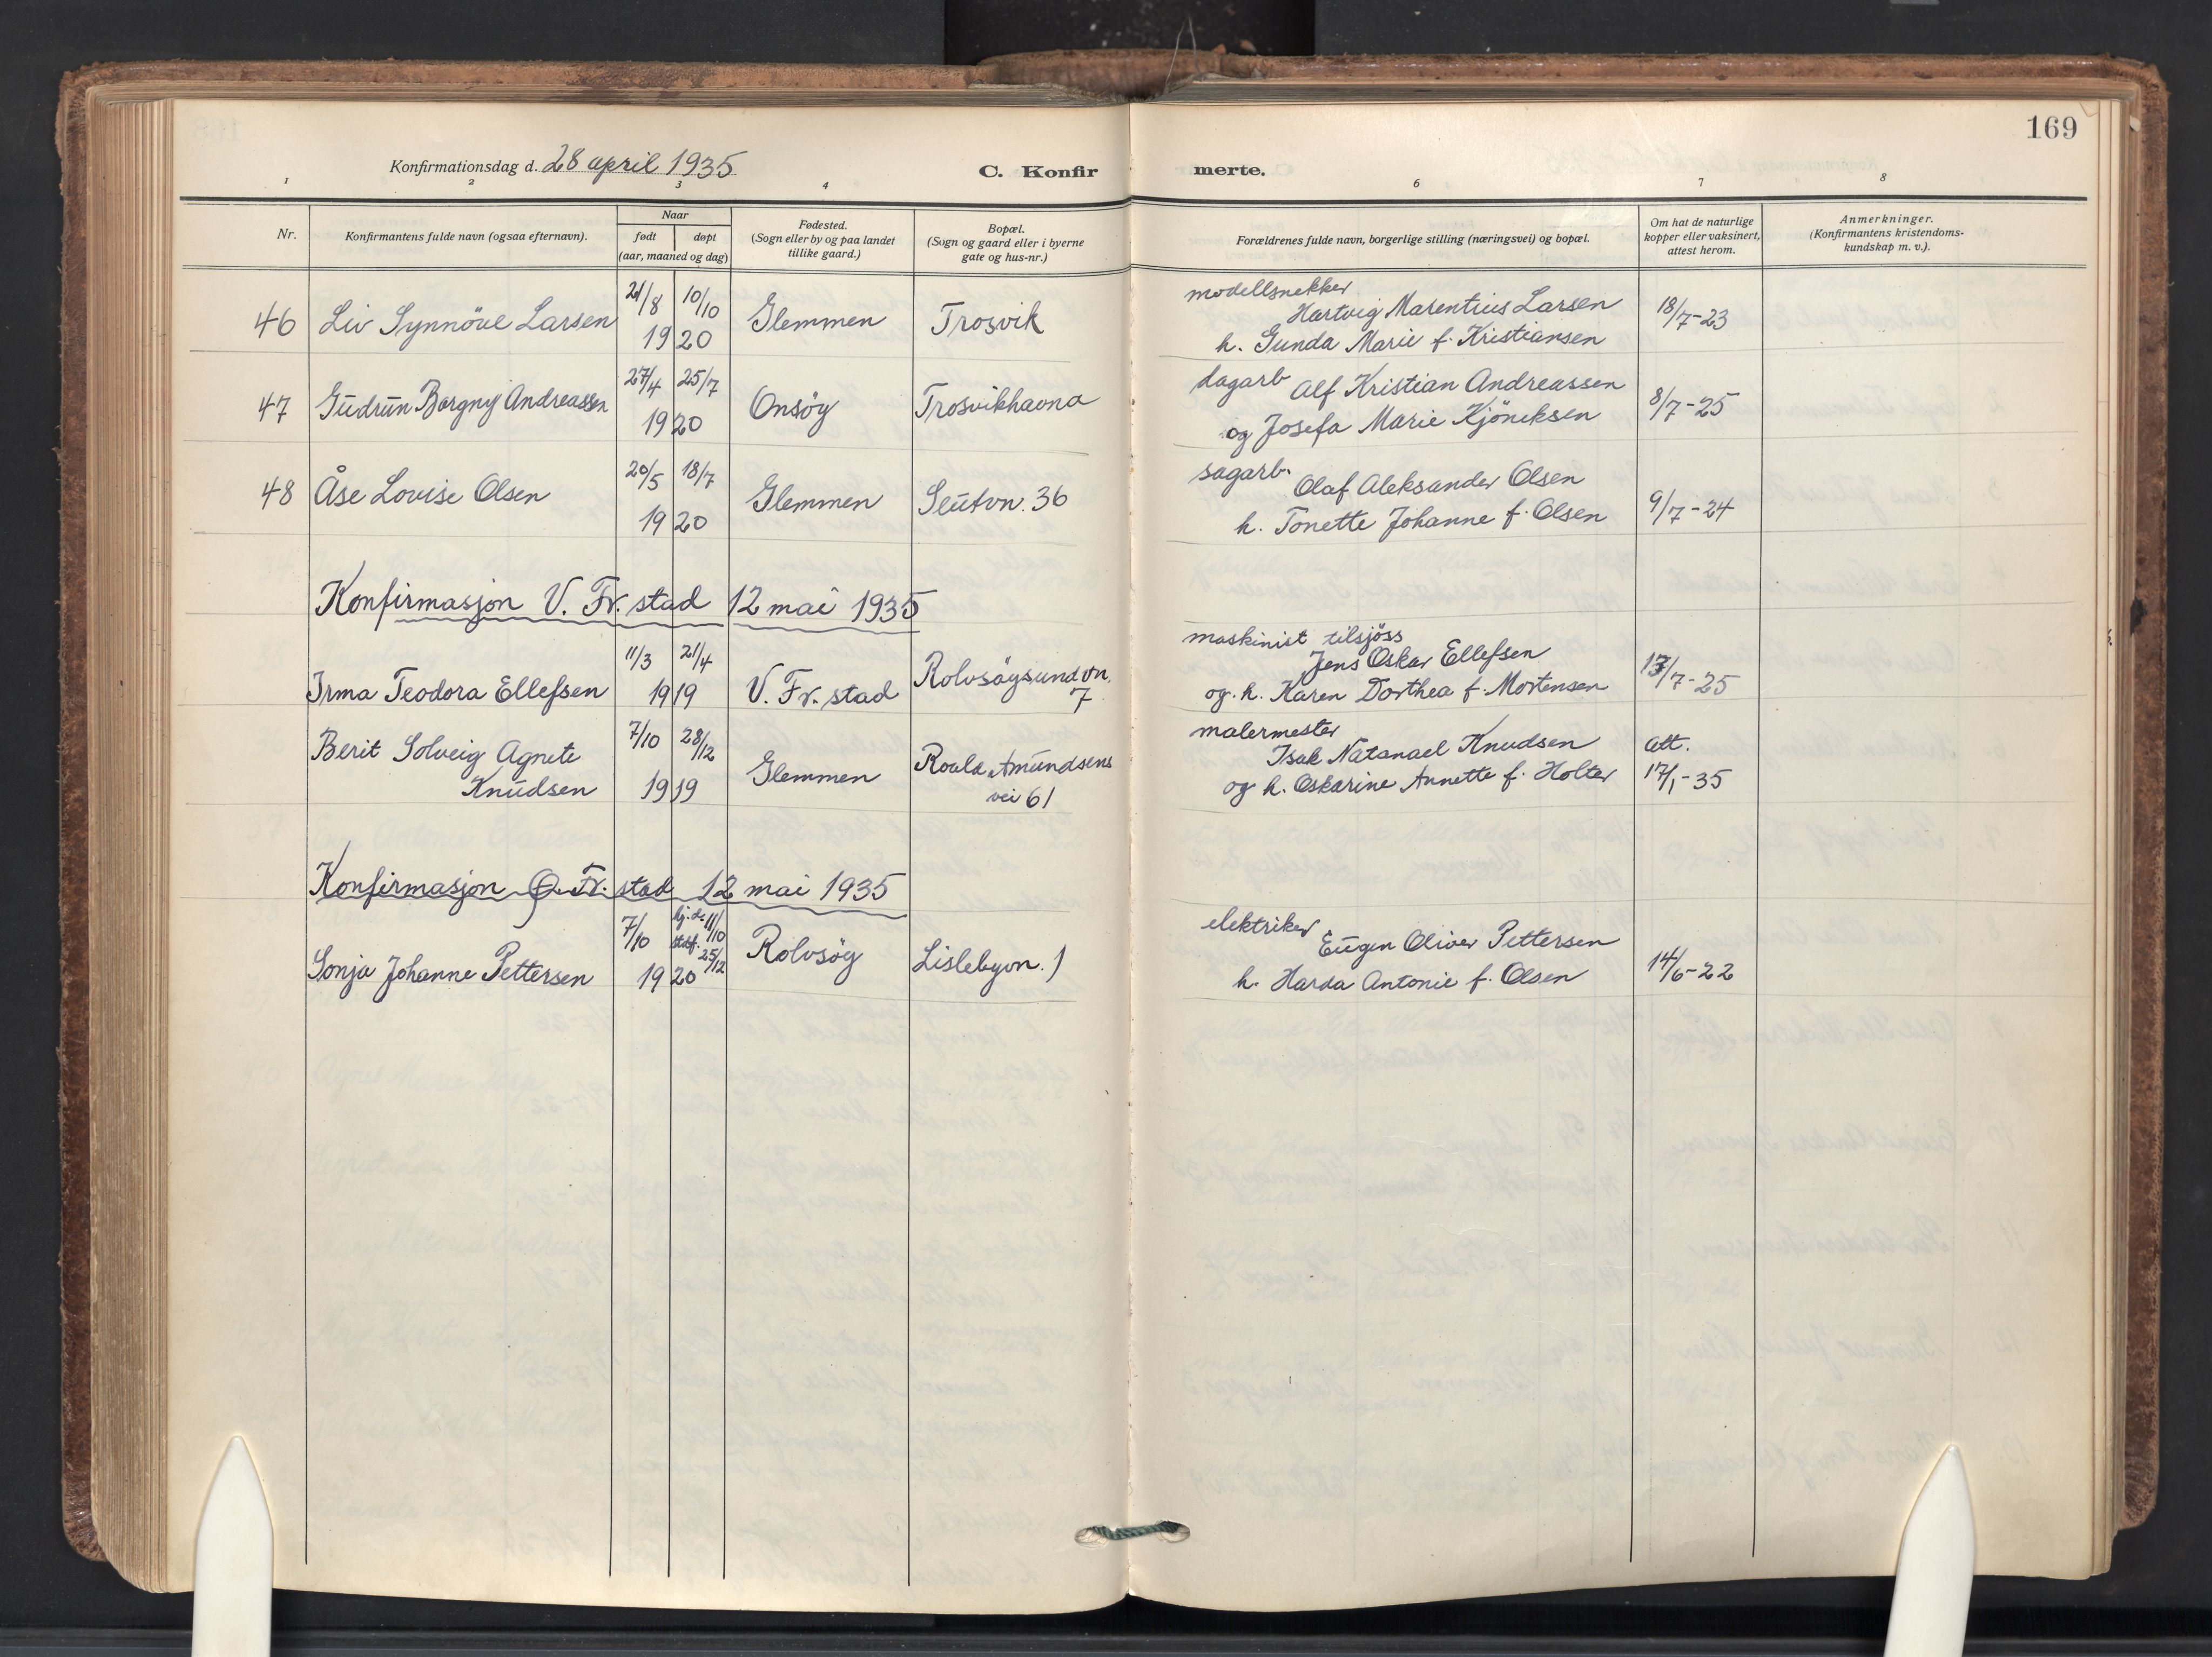 169
Konfirmationsdag d. 28 april 1935
C. Konfir
merte.
1 2 3 4 6 7 8
Nr.
Konfirmantens fulde navn (ogsaa efternavn).
Naar
født
døpt
(aar, maaned og dag)
Fødested.
(Sogn eller by og paa landet
tillike gaard.)
Bopæl.
(Sogn og gaard eller i byerne
gate og hus-nr.)
Forældrenes fulde navn, borgerlige stilling (næringsvei) og bopæl.
Om hat de naturlige
kopper eller vaksinert,
attest herom.
Anmerkninger.
(Konfirmantens kristendoms-
kundskap m. v.).
46 Liv Synnöve Larsen
21/8 10/10
1920
Glemmen
Trosvik
modellsnekker
Hartvig Marentius Larsen
h. Gunda Marie f. Kristiansen
18/7-23
47 Gudrun Borgny Andreassen
27/4 25/7
1920
Onsöy
Trosvikhavna
dagarb
Alf Kristian Andreassen
og Josefa Marie Kjöniksen
8/7-25
48 Åse Lovise Olsen
20/5 18/7
1920
Glemmen
Seutvn. 36
sagarb.
Olaf Aleksander Olsen
h. Tonette Johanne f. Olsen
9/7-24
Konfirmasjon V. Fr.stad 12 mai 1935
Irma Teodora Ellefsen
11/3 21/4
1919
V. Fr.stad
Rolvsöysundvn.
7
maskinist tilsjöss
Jens Oskar Ellefsen
og. h. Karen Dorthea f. Mortensen
13/7-25
Berit Solveig Agnete
Knudsen
7/10 28/12
1919
Glemmen
Roald Amundsens
vei 61
malermester
Isak Natanael Knudsen
og h. Oskarine Annette f. Holter
att.
17/1-35
Konfirmasjon Ø. Fr.stad 12 mai 1935
Sonja Johanne Pettersen
7/10
hj.d. 11/10
stsf. 25/12
1920
Rolvsöy
Lislebyvn. 1
elektriker
Eugen Oliver Pettersen
h. Harda Antonie f. Olsen
14/6-22